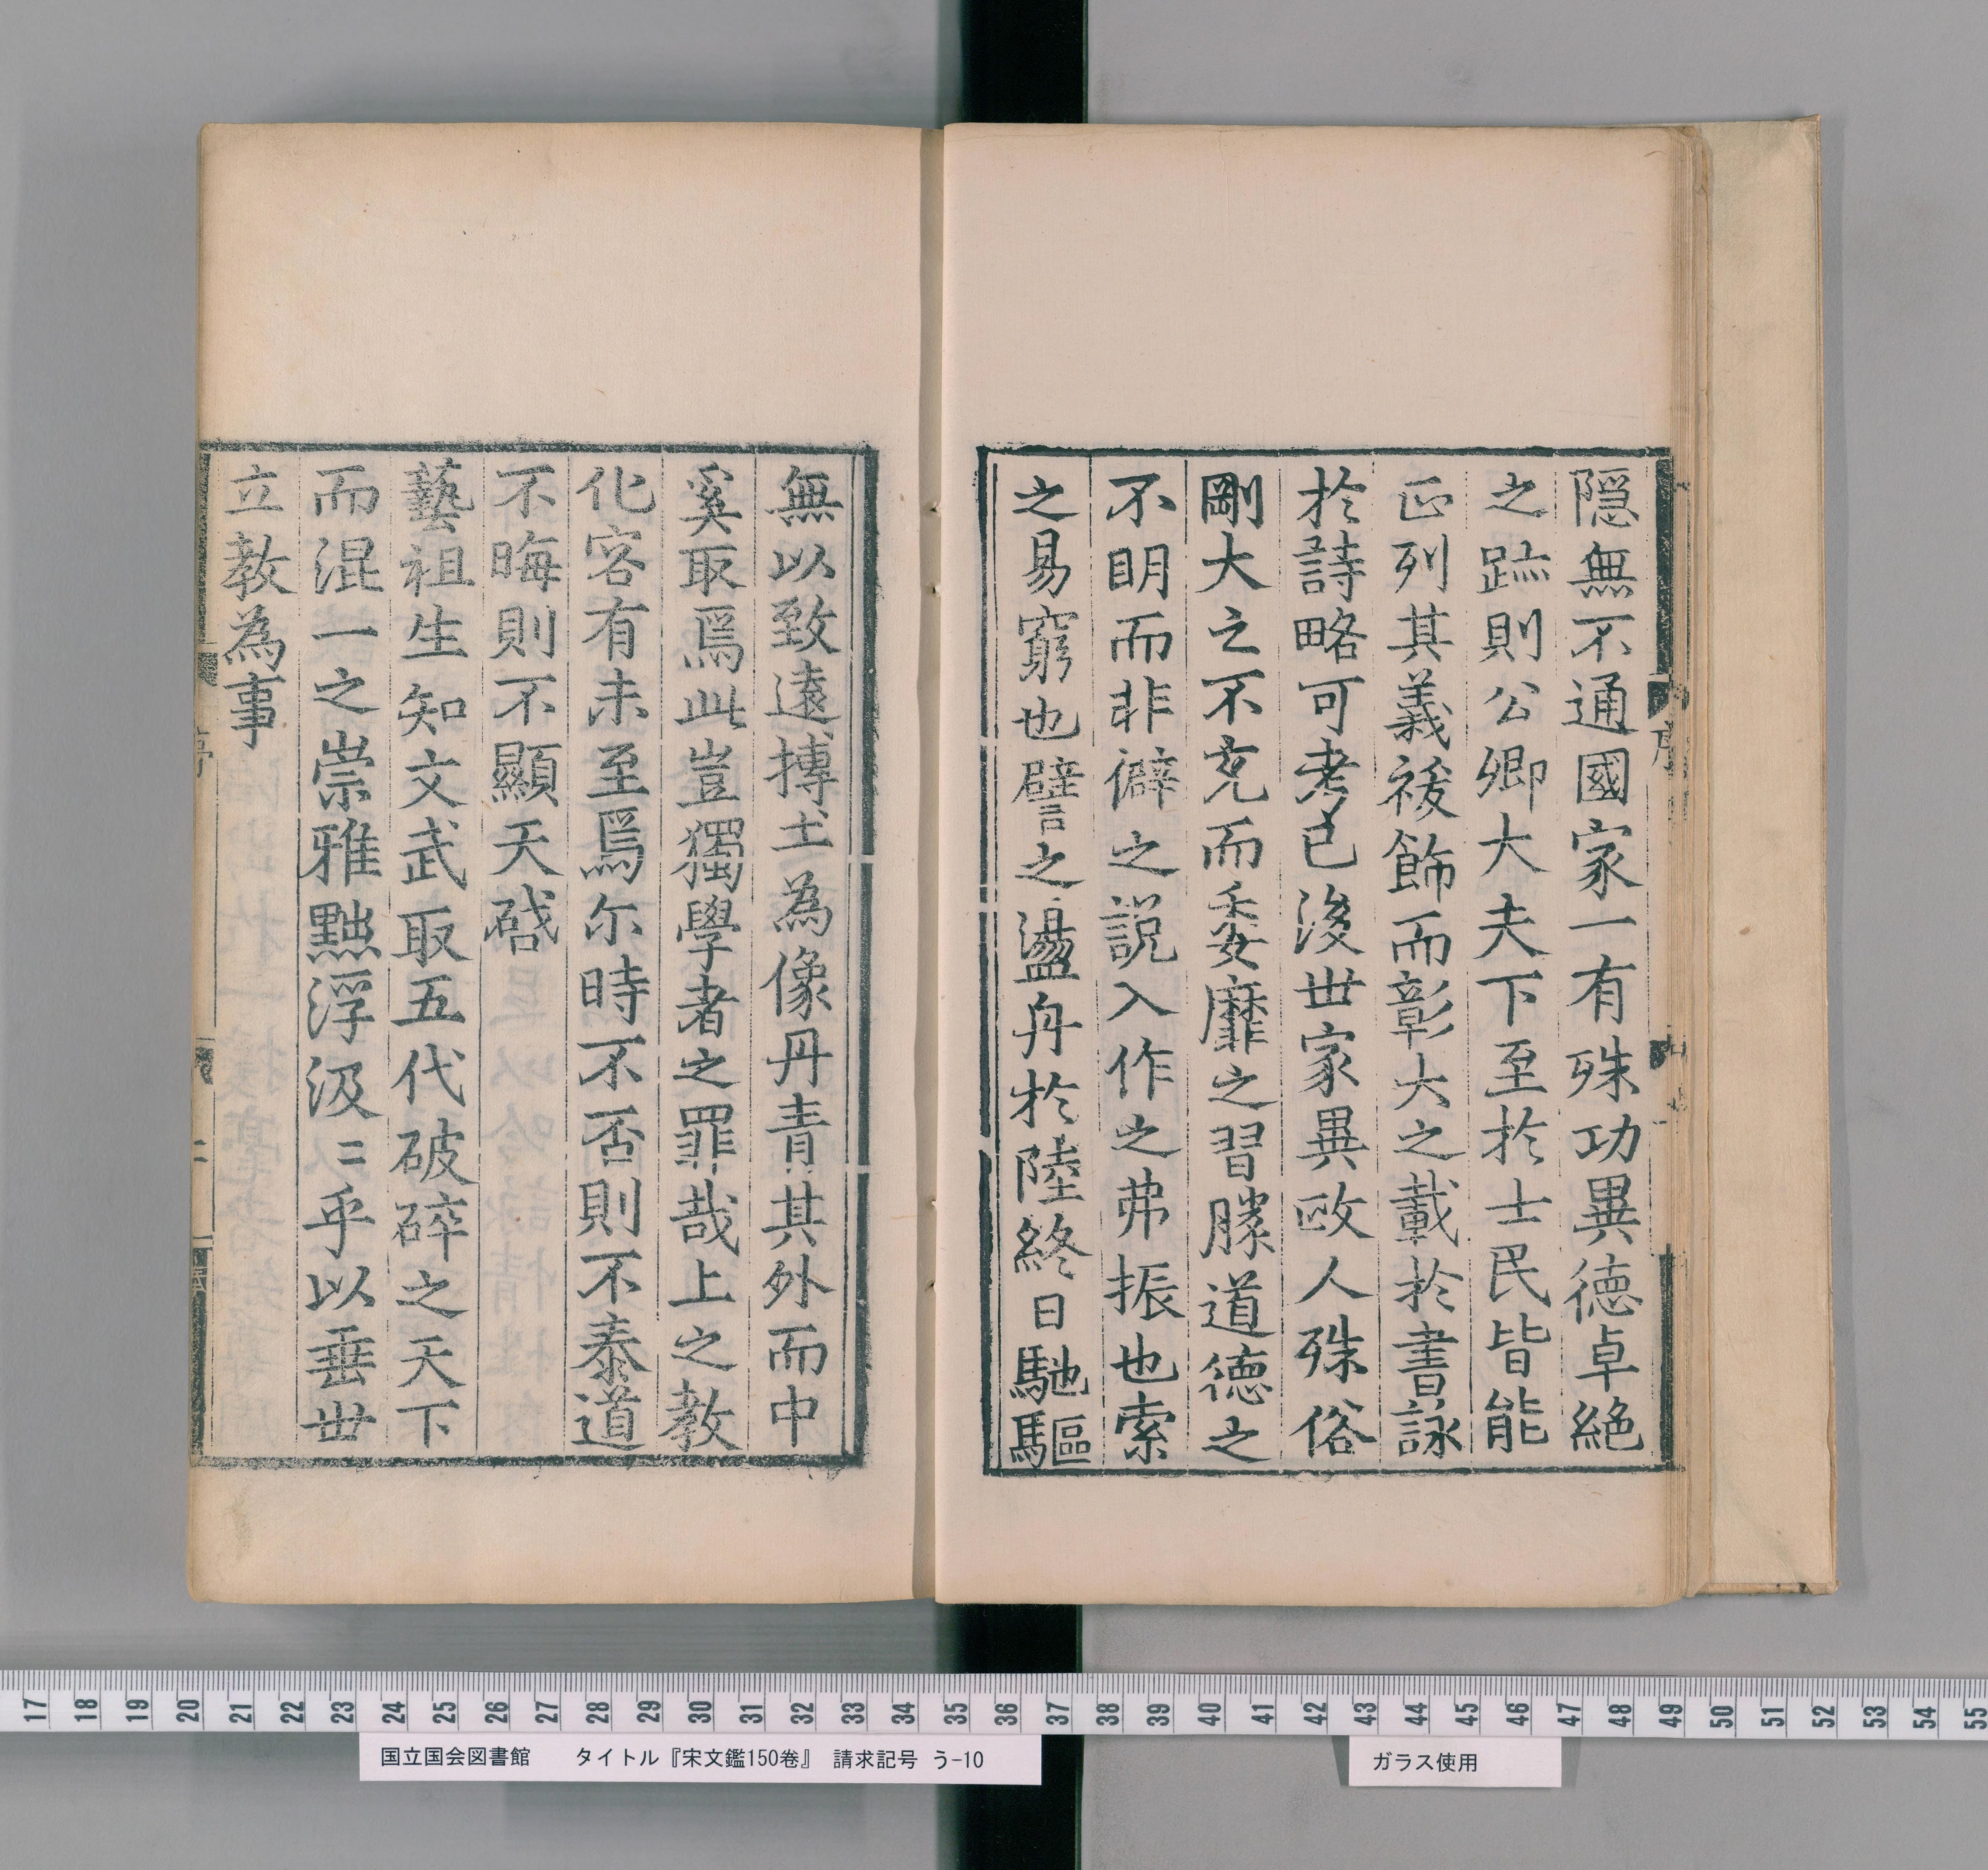 隱無不通國家一有殊功異德卓絕
之跡則公卿大夫下至於士民皆能
正列其義祓飾而彰大之載於書詠
於詩略可考已後世家異政人殊俗
剛大之不充而委靡之習勝道德之
不明而非僻之説入作之弗振也索
之易窮也譬之盪舟於陸終日馳驅
無以致遠摶土為像丹青其外而中
奚取焉此豈獨學者之罪哉上之教
化容有未至焉尔時不否則不泰道
不晦則不顯天啓
藝祖生知文武取五代破碎之天下
而混一之崇雅黜浮汲〻乎以垂世
立教為事
序
二
17 18 19 20 21 22 23 24 25 26 27 28 29 30 31 32 33 34 35 36 37 38 39 40 41 42 43 44 45 46 47 48 49 50 51 52 53 54 55
国立国会図書館 タイトル『宋文鑑150巻』 請求記号 う-10
ガラス使用